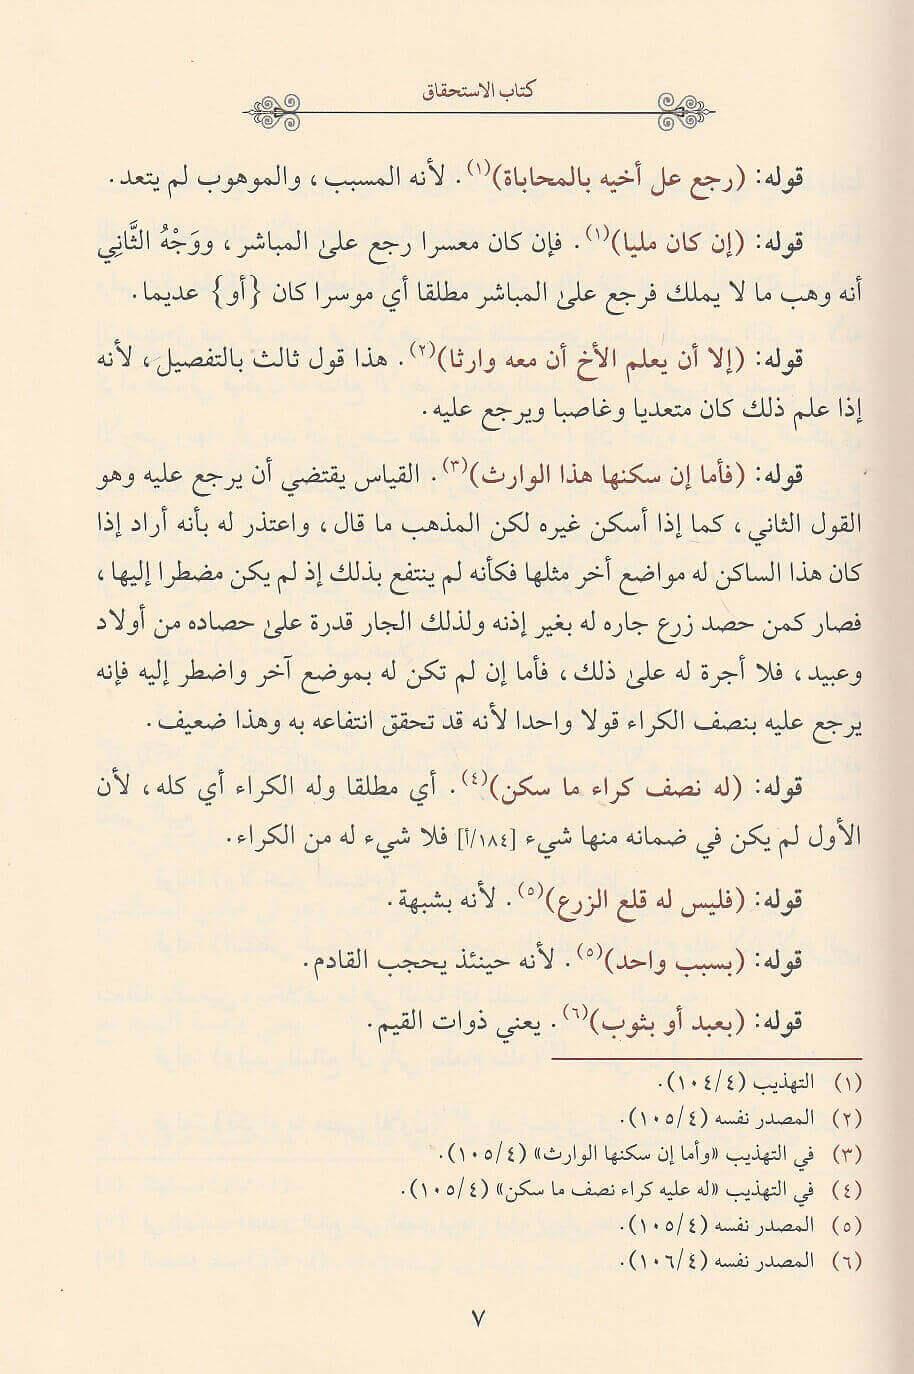 كتاب الاستحقاق
قوله: (رجع عل أخيه بالمحاباة)(١). لأنه المسبب، والموهوب لم يتعد.
قوله: (إن كان مليا)(١). فإن كان معسرا رجع على المباشر، ووَجْهُ الثَّانِي
أنه وهب ما لا يملك فرجع على المباشر مطلقا أي موسرا كان {أو} عديما.
قوله: (إلا أن يعلم الأخ أن معه وارثا)(٢). هذا قول ثالث بالتفصيل، لأنه
إذا علم ذلك كان متعديا وغاصبا ويرجع عليه.
قوله: (فأما إن سكنها هذا الوارث)(٣). القياس يقتضي أن يرجع عليه وهو
القول الثاني، كما إذا أسكن غيره لكن المذهب ما قال، واعتذر له بأنه أراد إذا
كان هذا الساكن له مواضع أخر مثلها فكأنه لم ينتفع بذلك إذ لم يكن مضطرا إليها،
فصار كمن حصد زرع جاره له بغير إذنه ولذلك الجار قدرة على حصاده من أولاد
وعبيد، فلا أجرة له على ذلك، فأما إن لم تكن له بموضع آخر واضطر إليه فإنه
يرجع عليه بنصف الكراء قولا واحدا لأنه قد تحقق انتفاعه به وهذا ضعيف.
قوله: (له نصف كراء ما سكن)(٤). أي مطلقا وله الكراء أي كله، لأن
الأول لم يكن في ضمانه منها شيء [١٨٤/أ] فلا شيء له من الكراء.
قوله: (فليس له قلع الزرع)(٥). لأنه بشبهة.
قوله: (بسبب واحد)(٥). لأنه حينئذ يحجب القادم.
قوله: (بعبد أو بثوب)(٦). يعني ذوات القيم.
(١) التهذيب (١٠٤/٤).
(٢) المصدر نفسه (١٠٥/٤).
(٣) في التهذيب «وأما إن سكنها الوارث» (١٠٥/٤).
(٤) في التهذيب «له عليه كراء نصف ما سكن» (١٠٥/٤).
(٥) المصدر نفسه (١٠٥/٤).
(٦) المصدر نفسه (١٠٦/٤).
٧